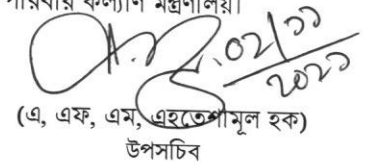 পরিবার কল্যাণ মন্ত্রণালয়।
০২/১১
২০২১
(এ, এফ, এম, এহতেশামূল হক)
উপসচিব